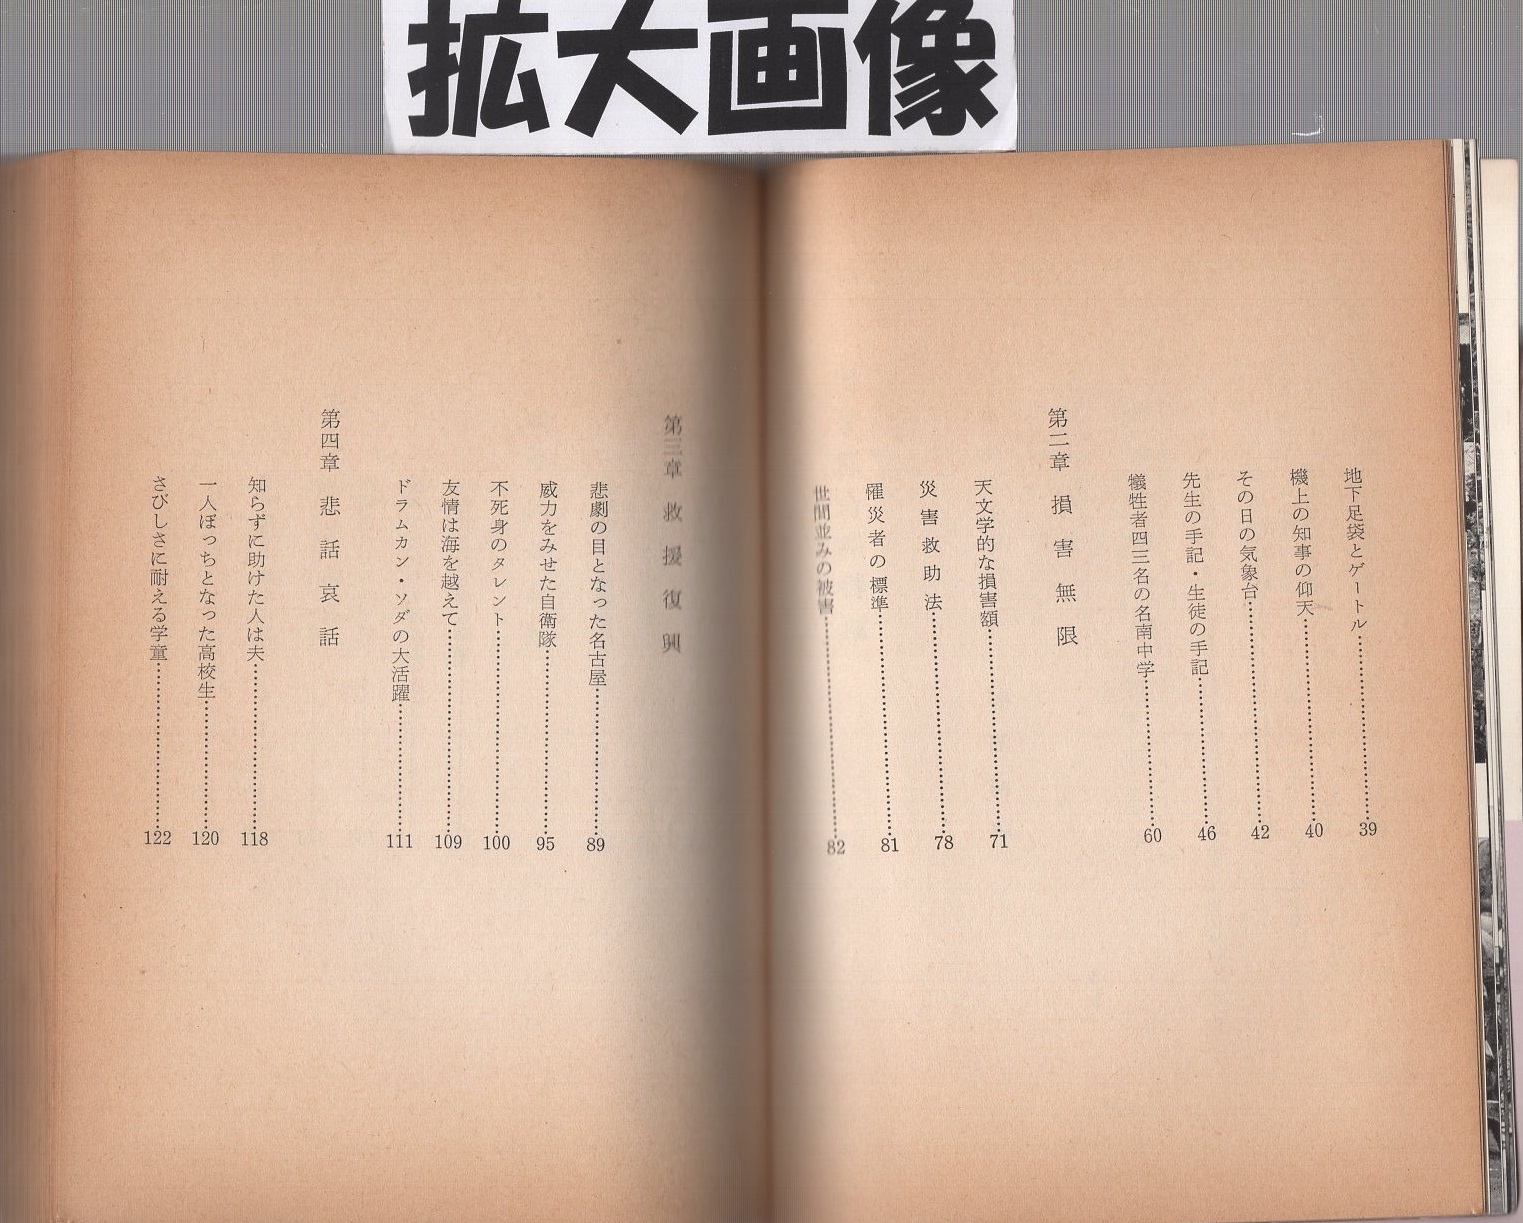 拡大画像
地下足袋とゲートル……39
機上の知事の仰天……40
その日の気象台……42
先生の手記・生徒の手記……46
犠牲者四三名の名南中学……60
第二章 損害無限
天文学的な損害額……71
災害救助法……78
罹災者の標準……81
世間並みの被害……82
第三章 救援復興
悲劇の目となった名古屋……89
威力をみせた自衛隊……95
不死身のタレント……100
友情は海を越えて……109
ドラムカン・ソダの大活躍……111
第四章 悲話哀話
知らずに助けた人は夫……118
一人ぼっちとなった高校生……120
さびしさに耐える学童……122